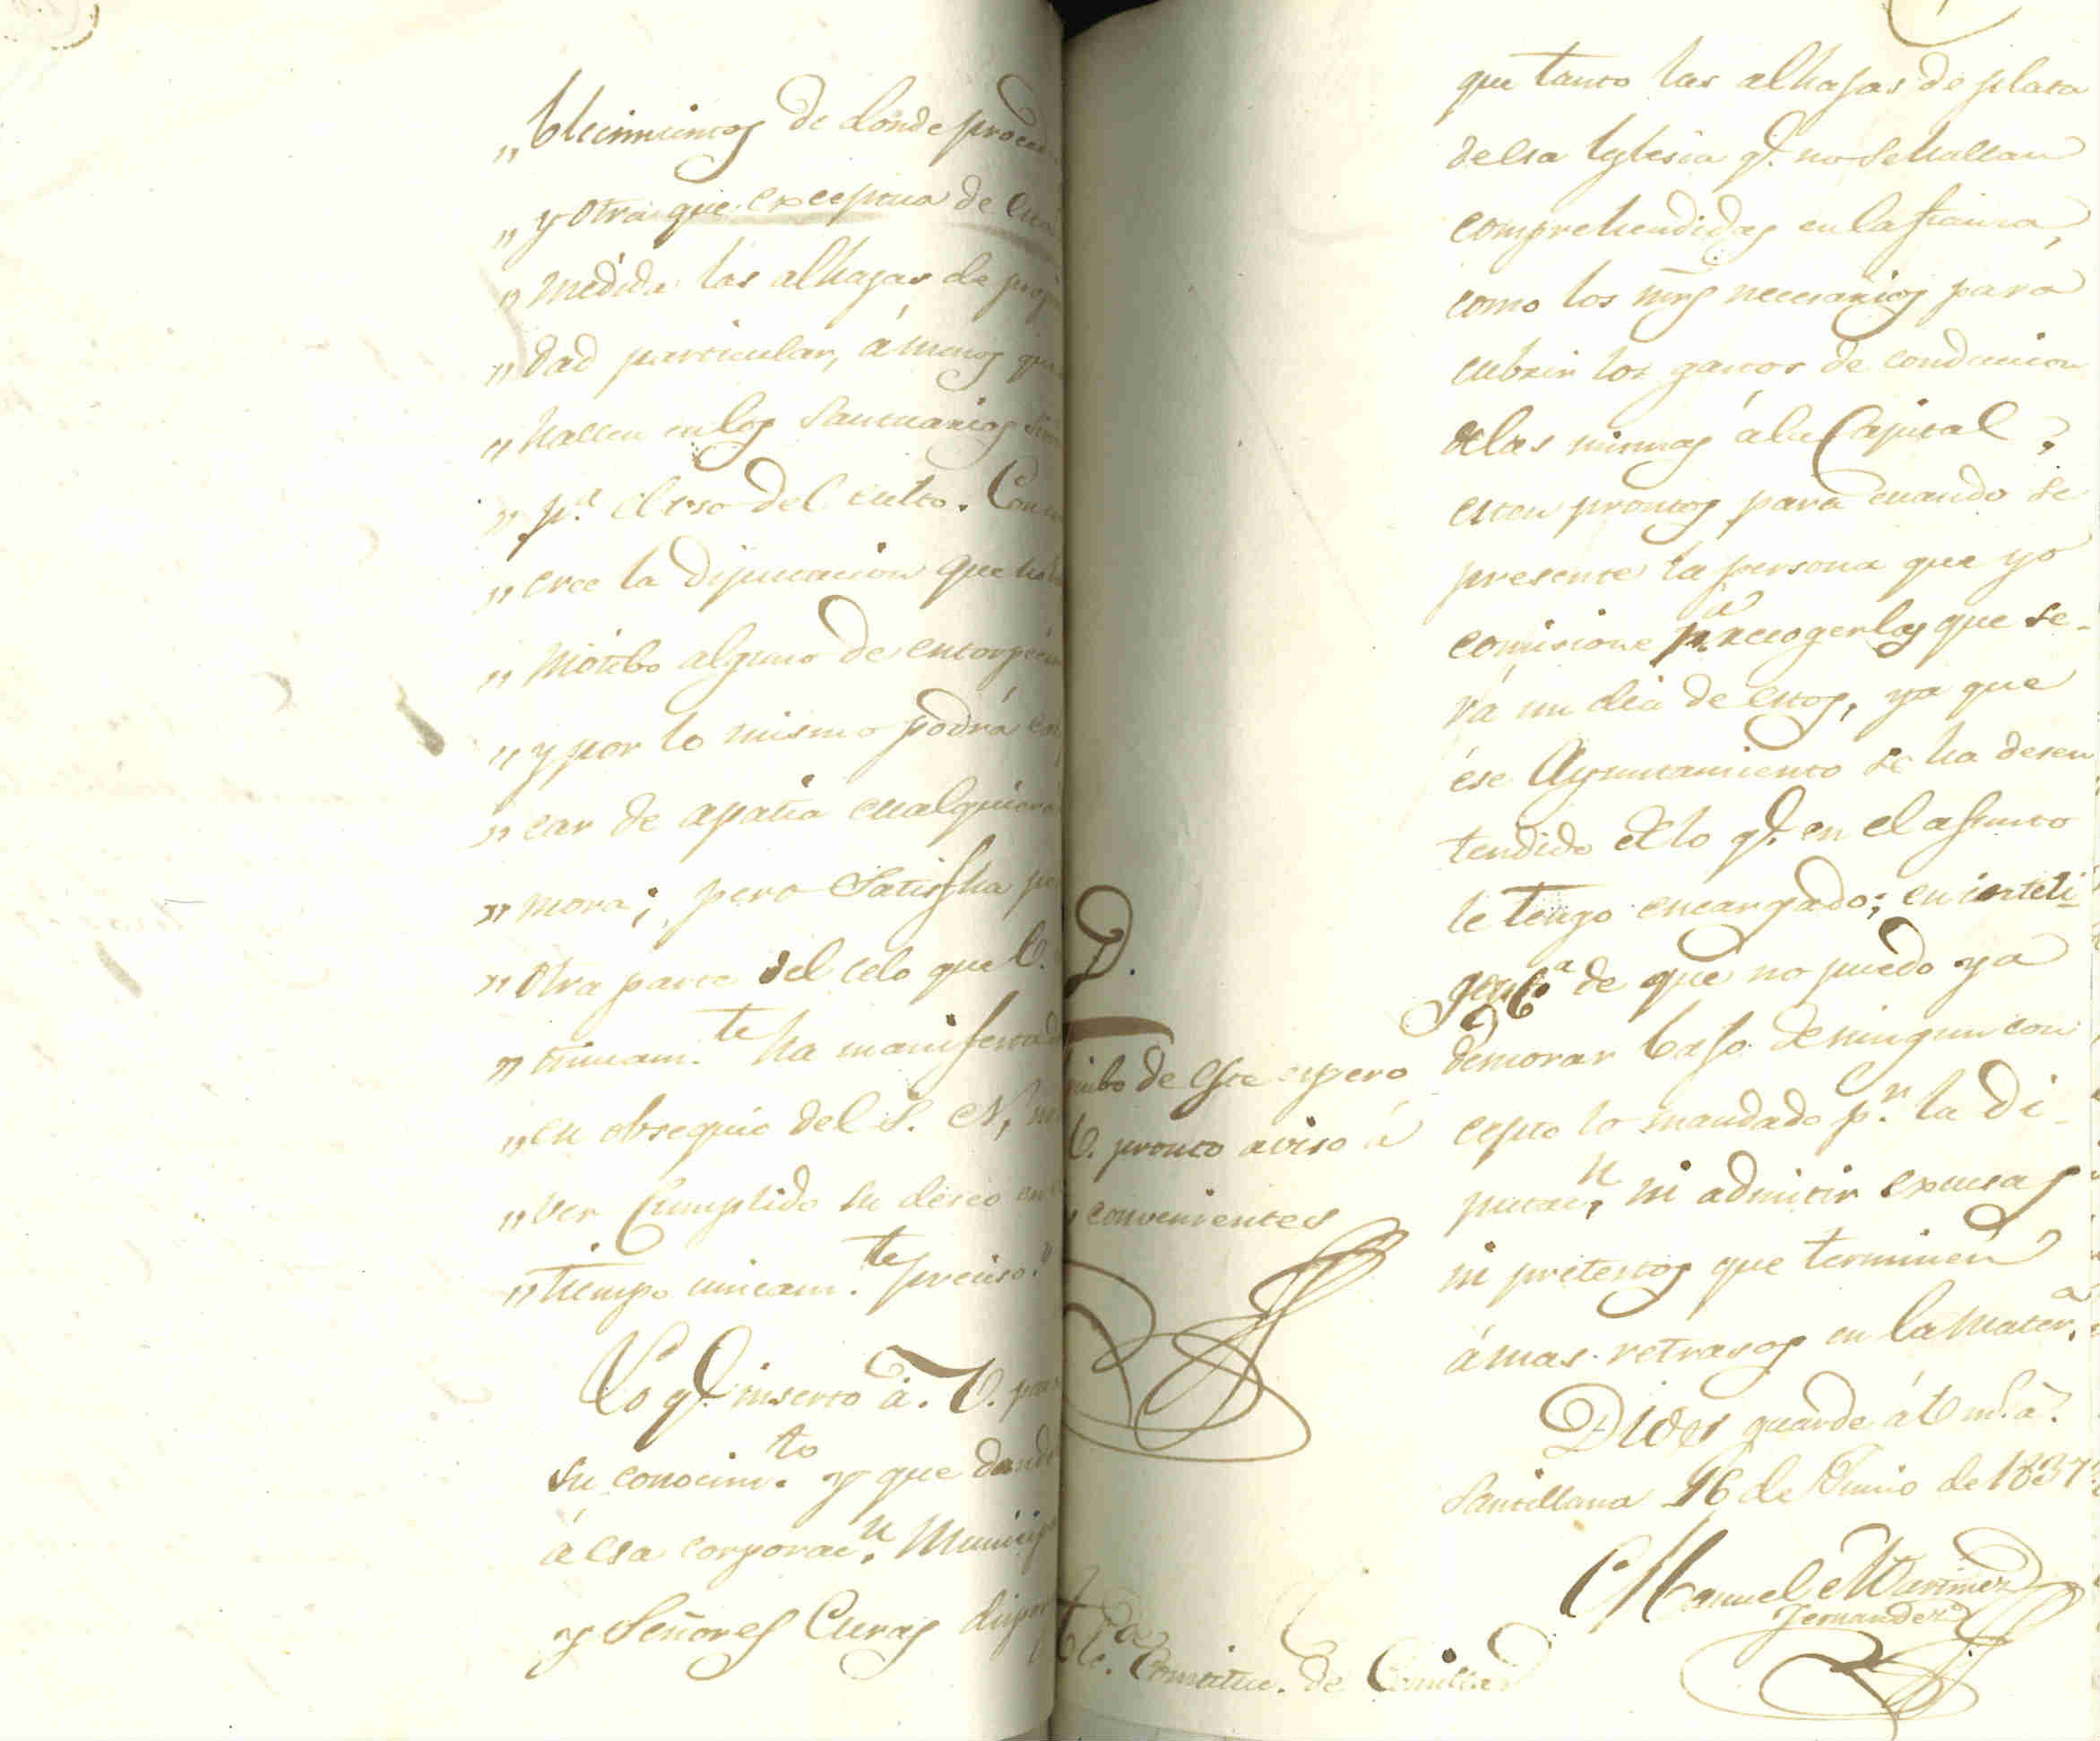 „blecimientos de donde proce
„y otra que exceptua de
„medida las alhajas de pro
„dad particular, á menos que
„hallen en los Santuarios
„p.ª el uso del culto. Con
„cree la Diputacion que
„motibo alguno de entorpecim
„y por lo mismo podrá
„car de apatia cualquiera
„mora; pero Satisfha po
„otra parte del celo que V.
„tinuam.te ha manifestad
„en obsequio del S. N,
„ver Cumplido su deseo en
„tiempo unicam.te preciso."
Lo q.e inserto á V. para
su conocim.to y que dando
á esa corporac.n Municip
y Señores Curas dispon
D.
cibo de este espero
V. pronto aviso á
convenientes
Alc.de Constituc. de Comillas
que tanto las alhajas de plata
de esa Iglesia q.e no se hallan
comprehendidas en la fianza,
como los mrs necesarios para
cubrir los gastos de conduccion
de las mismas á la Capital
esten prontos para cuando se
presente la persona que yo
comisione p.ª recogerlas que se-
rá un dia de estos, ya que
ese Ayuntamiento se ha desen
tendido de lo q.e en el asunto
le tengo encargado; en inteli-
genc.ª de que no puedo ya
demorar bajo de ningun con
cepto lo mandado p.r la Di-
putac.n, ni admitir excusas
ni pretestos que terminen
á mas retrasos en la mater.ª
Dios guarde á V m.s a.s
Santillana 16 de Junio de 1837.
Manuel Martinez
Fernandez